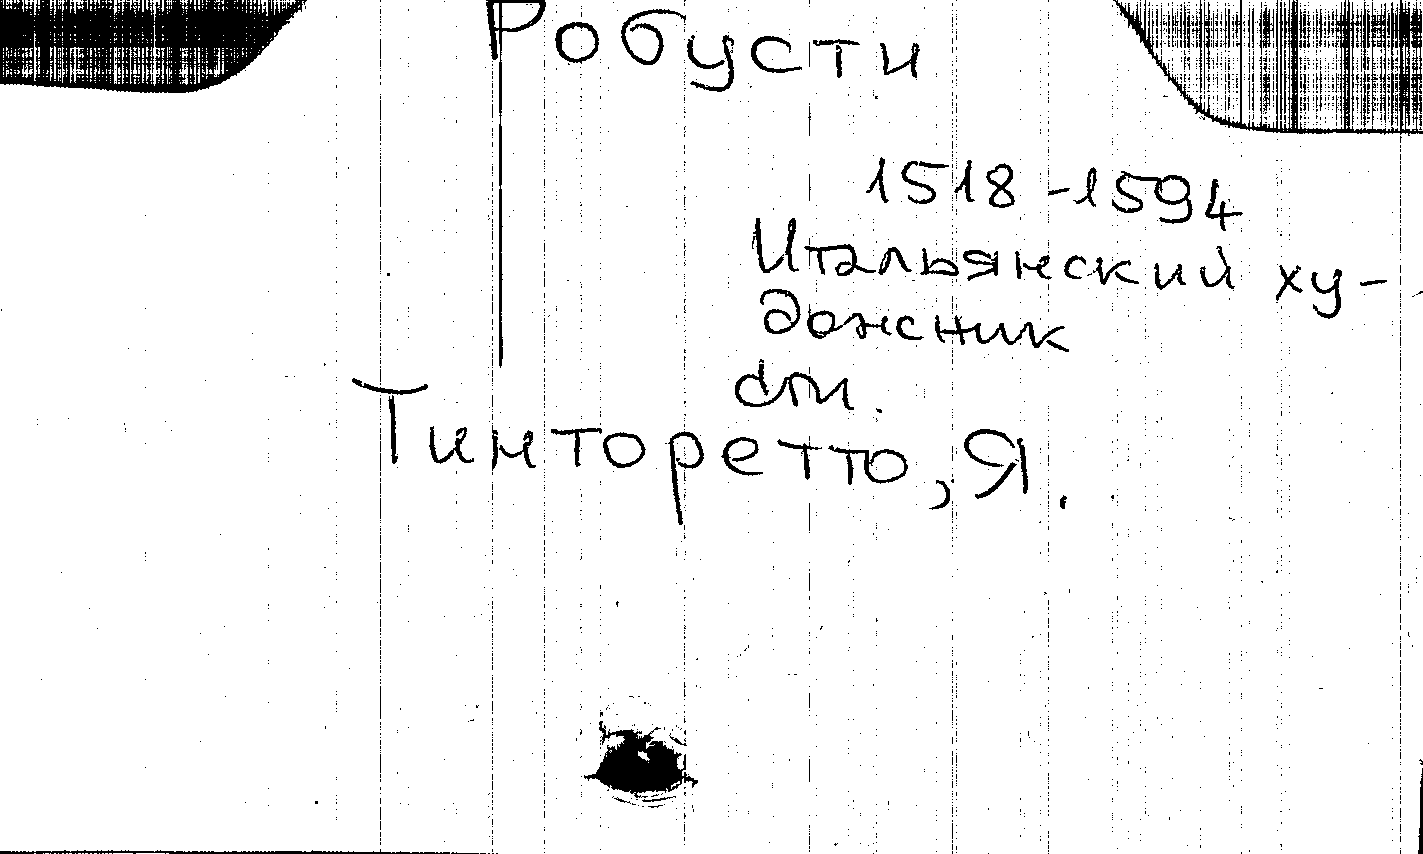 Робусти
1518-1594
Итальянский ху-
дожник
см.
Тинторетто, Я.